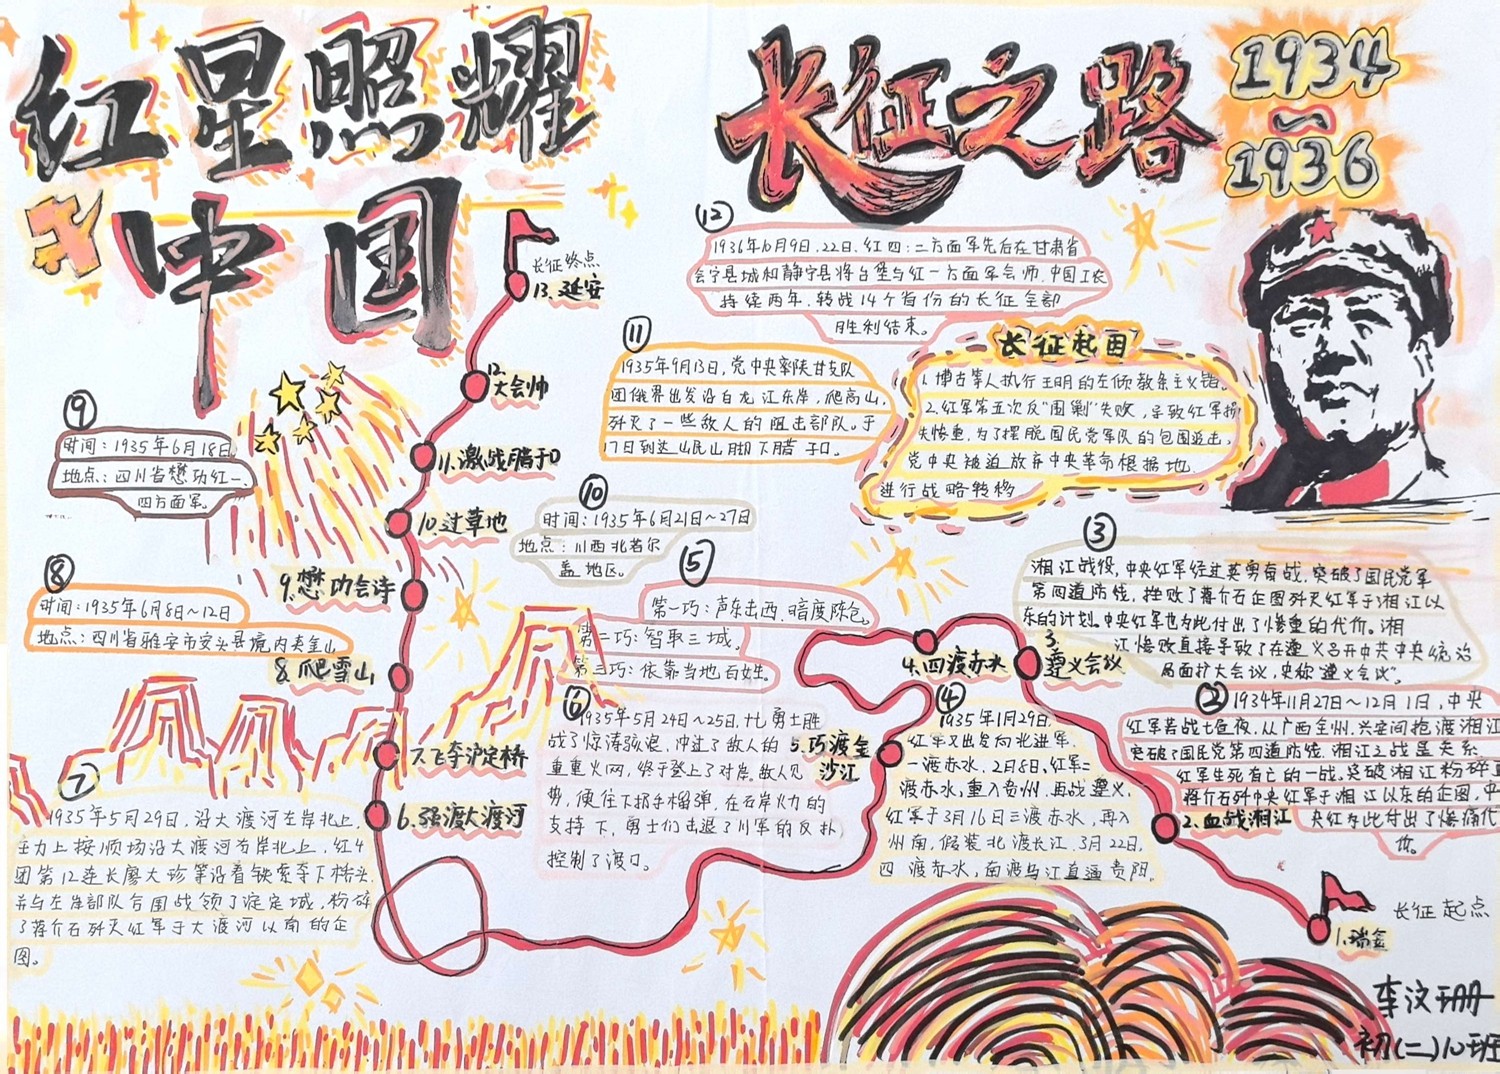 红星照耀
中国
长征之路
1934
~
1936
⑫
1936年6月9日.22日.红四:二方面军先后在甘肃省
会宁县城和静宁县将台堡与红一方面军会师.中国工农
持续两年.转战14个省份的长征全部
胜利结束。
⑪
1935年9月13日,党中央率陕甘支队
团俄界出发沿白龙江东岸,爬高山,
歼灭了一些敌人的阻击部队。于
17日到达山民山脚下腊子口。
长征起因
1.博古等人执行王明的左倾教条主义错。
2.红军第五次反"围剿"失败,导致红军损
失惨重,为了摆脱国民党军队的包围追击,
党中央被迫放弃中央革命根据地.
进行战略转移
长征终点
13.延安
12.
大会帅
11.激战腊子口
10.过草地
9.懋功会诗
8.爬雪山
7.飞夺沪定桥
6.强渡大渡河
5.巧渡金
沙江
4.四渡赤水
3.
遵义会议
2.血战湘江
长征起点
1.瑞金
⑨
时间:1935年6月18日
地点:四川省懋功红一、
四方面军。
⑩
时间:1935年6月21日~27日
地点:川西北若尔
盖地区。
⑧
时间:1935年6月8日~12日
地点:四川省雅安市安头县境内夹金山
⑤
第一巧:声东击西.暗度陈仓。
第二巧:智取三城。
第三巧:依靠当地百姓。
③
湘江战役,中央红军经过英勇奋战,突破了国民党军
第四道防线,挫败了蒋介石企图歼灭红军于湘江以
东的计划.中央红军也为此付出了惨重的代价。湘
江惨败直接导致了在遵义召开中共中央统治
局面扩大会议,史称"遵义会议"。
②
1934年11月27日~12月1日,中央
红军苦战七昼夜.从广西全州.兴安间抢渡湘江
突破了国民党第四道防线.湘江之战是关系
红军生死存亡的一战.突破湘江粉碎
蒋介石歼中央红军于湘江以东的企图,中
央红军为此付出了惨痛代
价。
⑥
1935年5月24日~25日.十七勇士胜
战了惊涛骇浪,冲过了敌人的
重重火网,终于登上了对岸。敌人见
势,便往下扔手榴弹,在右岸火力的
支持下,勇士们击退了川军的反扑
控制了渡口。
④
1935年1月29日
红军又出发向北进军.
一渡赤水.2月8日,红军二
渡赤水,重入贵州.再战遵义.
红军于3月16日三渡赤水,再入
州南,假装北渡长江.3月22日,
四渡赤水,南渡乌江直逼贵阳。
⑦
1935年5月29日,沿大渡河左岸北上.
主力上按顺场沿大渡河右岸北上,红4
团第12连长廖大珍等沿着铁索夺下桥头
并与左岸部队合围战领了泸定城,粉碎
了蒋介石歼灭红军于大渡河以南的企
图。
李汶珊
初(二)10班